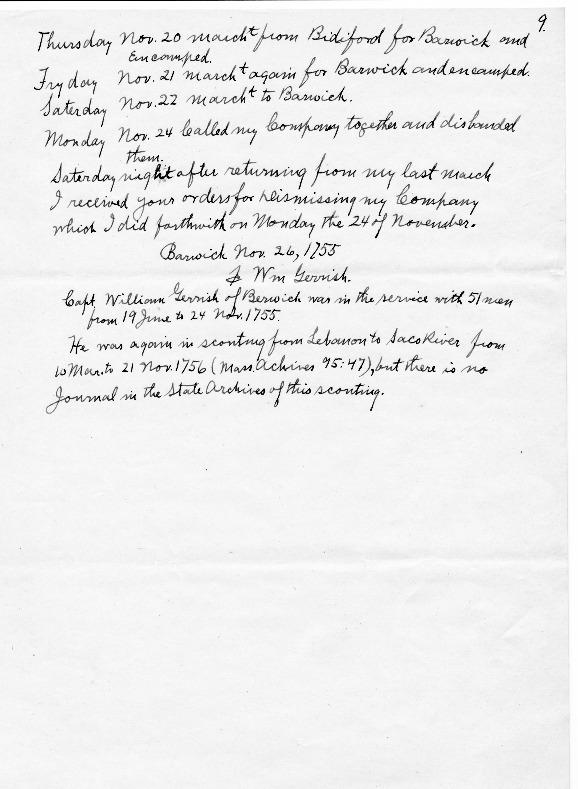 9.
Thursday Nov. 20 march^t from Bidiford for Barwick and
Encamped.
Fryday Nov. 21 march^t again for Barwick and encamped.
Saterday Nov. 22 march^t to Barwick.
Monday Nov. 24 Called my Company together and disbanded
them.
Saterday night after returning from my last march
I received your orders for Dismissing my Company
which I did forthwith on Monday the 24 of November.
Barwick Nov. 26, 1755
Wm Gerrish.
Capt. William Gerrish of Berwick was in the service with 51 men
from 19 June to 24 Nov. 1755.
He was again in scouting from Lebanon to Saco River from
10 Mar. to 21 Nov. 1756 (Mass. Achives 95:47), but there is no
Journal in the State Archives of this scouting.